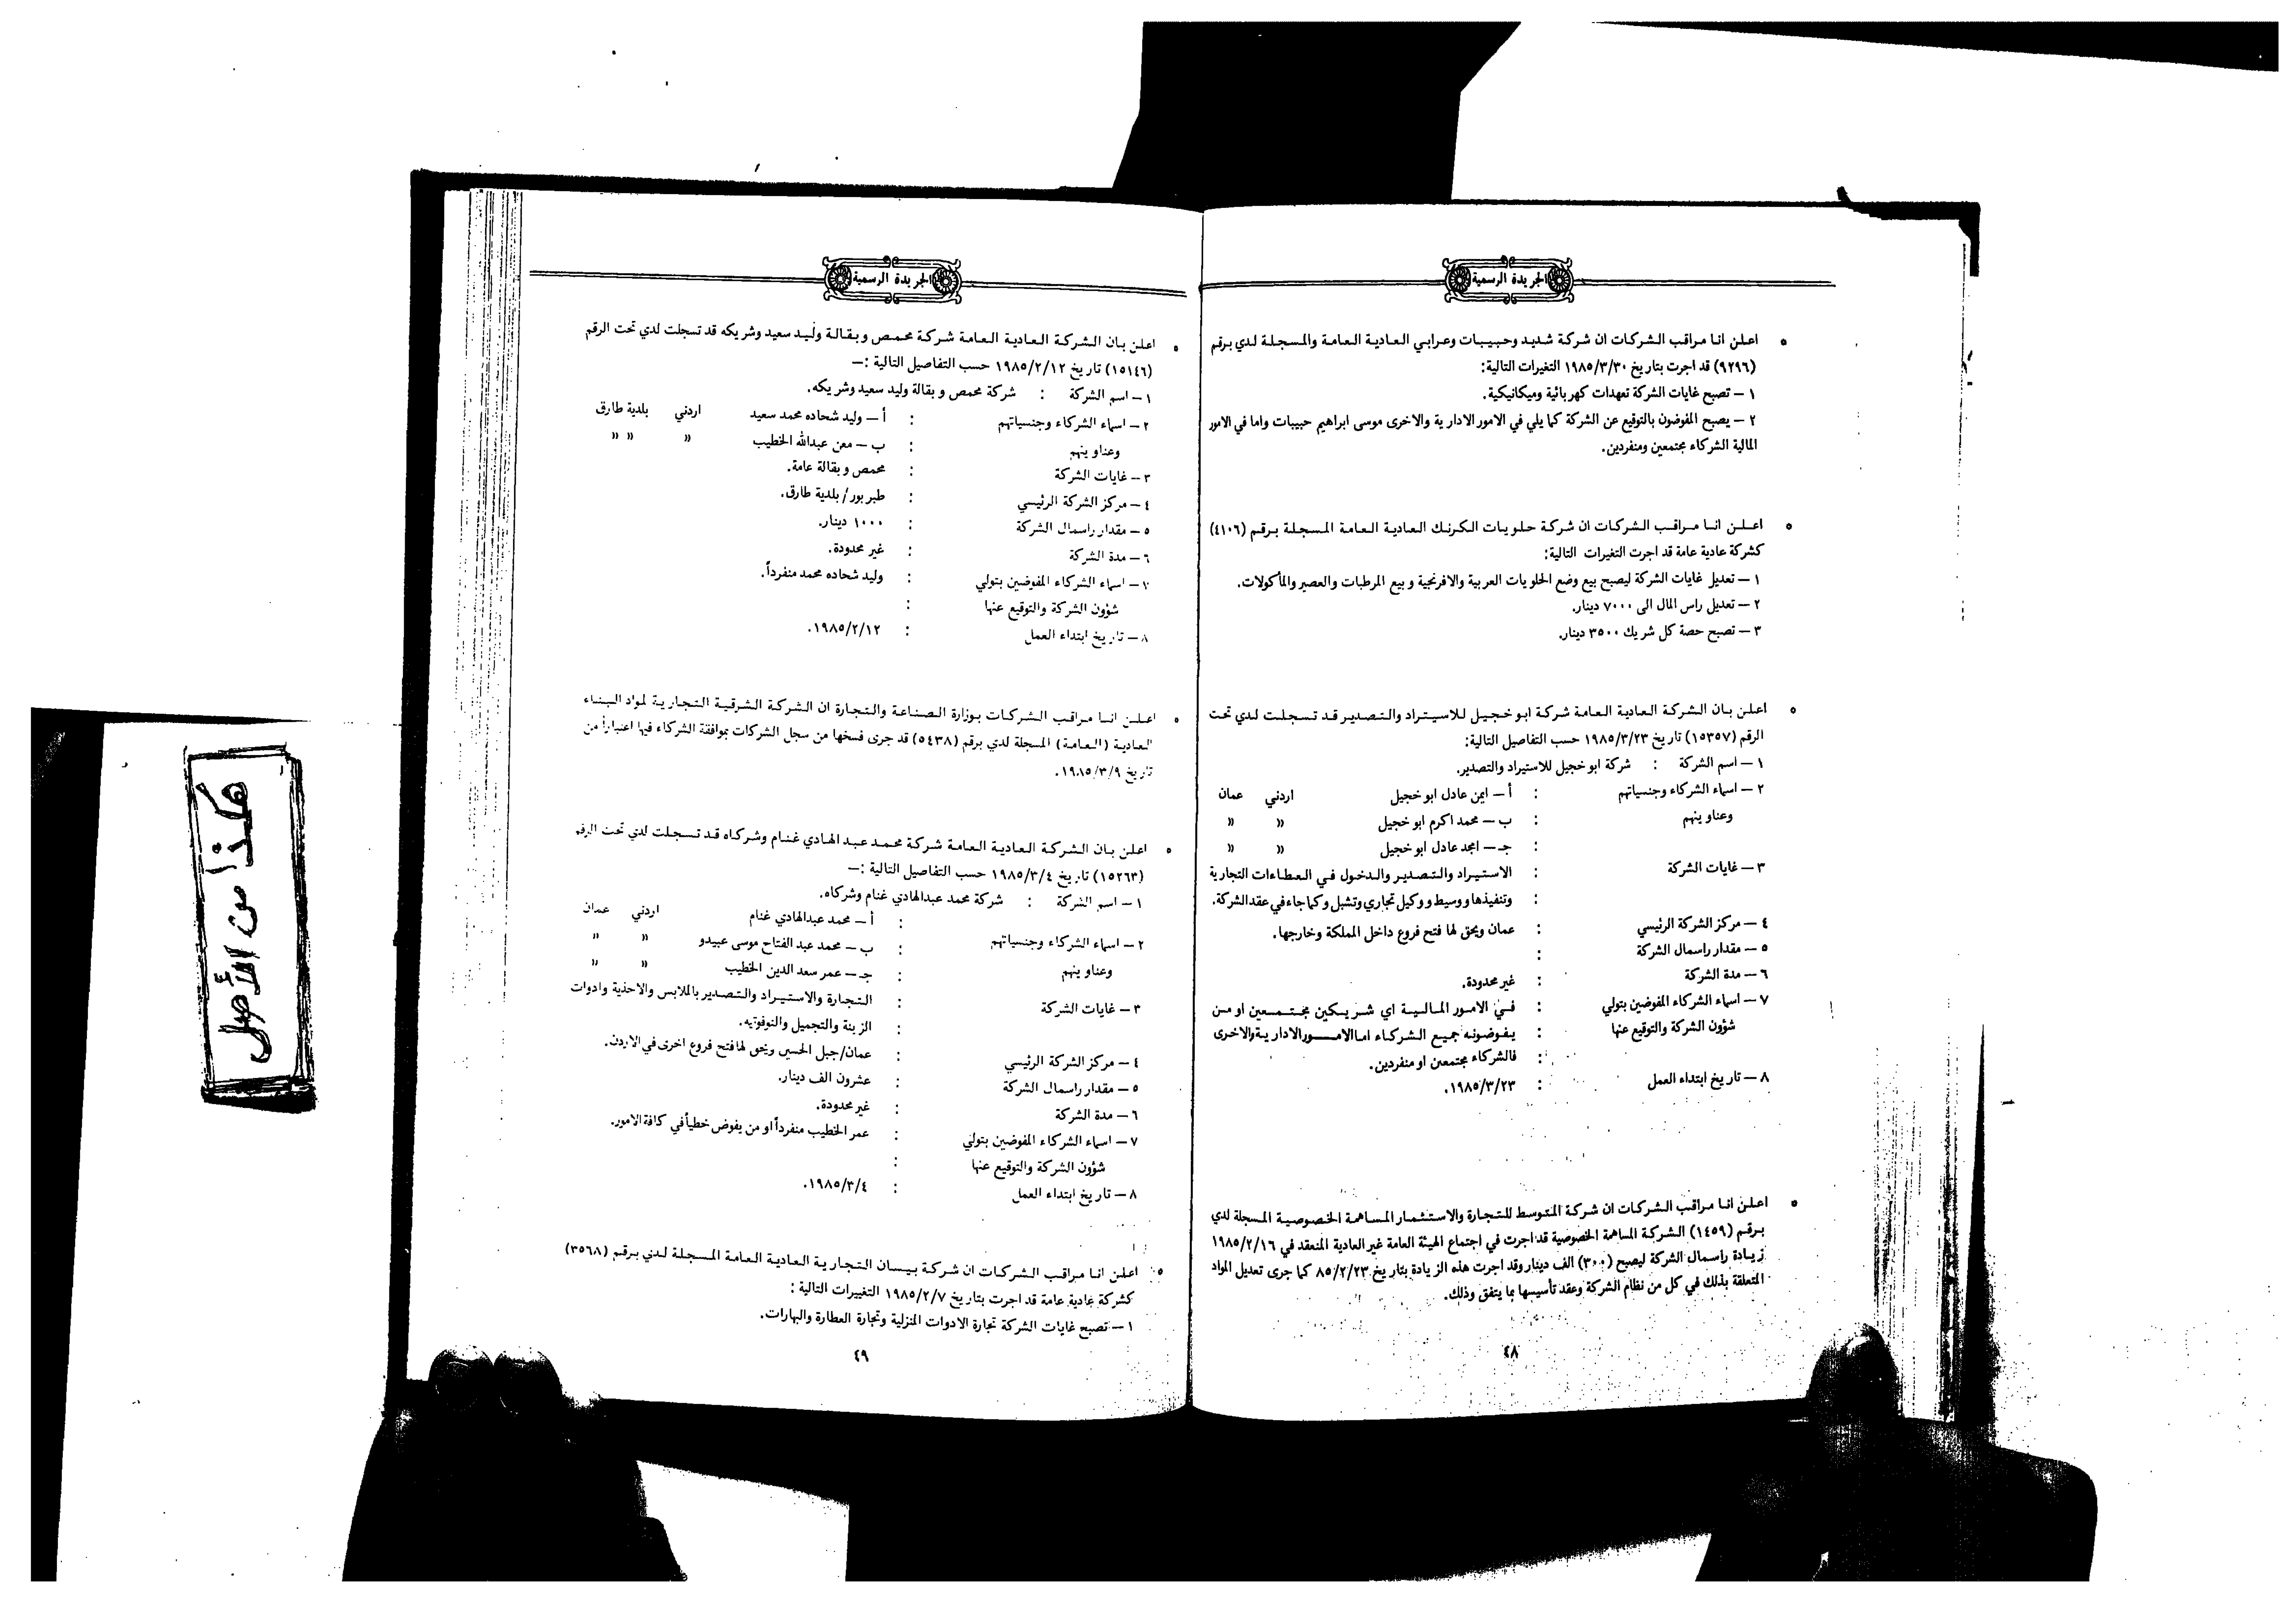 الجريدة الرسمية
اعلن انا مراقب الشركات ان شركة شديد وحبيبات وعرابي العادية العامة والمسجلة لدي برقم
(٩٢٩٦) قد اجرت بتاريخ ١٩٨٥/٣/٣٠ التغيرات التالية:
١ – تصبح غايات الشركة تعهدات كهربائية وميكانيكية.
٢ – يصبح المفوضون بالتوقيع عن الشركة كما يلي في الامور الادارية والاخرى موسى ابراهيم حبيبات واما في الامور
المالية الشركاء مجتمعين ومنفردين.
اعلن انا مراقب الشركات ان شركة حلويات الكرنك العادية العامة المسجلة برقم (٤١٠٦)
كشركة عادية عامة قد اجرت التغيرات التالية:
١ – تعديل غايات الشركة ليصبح بيع وضع الحلويات العربية والافرنجية وبيع المرطبات والعصير والمأكولات.
٢ – تعديل راس المال الى ٧٠٠٠ دينار.
٣ – تصبح حصة كل شريك ٣٥٠٠ دينار.
اعلن بان الشركة العادية العامة شركة ابو خجيل للاسيتراد والتصدير قد تسجلت لدي تحت
الرقم (١٥٣٥٧) تاريخ ١٩٨٥/٣/٢٣ حسب التفاصيل التالية:
١ – اسم الشركة : شركة ابو خجيل للاستيراد والتصدير.
٢ – اسماء الشركاء وجنسياتهم : أ – ايمن عادل ابو خجيل اردني عمان
وعناوينهم : ب – محمد اكرم ابو خجيل » »
: جـ – امجد عادل ابو خجيل » »
٣ – غايات الشركة : الاستيراد والتصدير والدخول في العطاءات التجارية
: وتنفيذها ووسيط ووكيل تجاري وتشبل وكما جاء في عقد الشركة.
٤ – مركز الشركة الرئيسي : عمان ويحق لها فتح فروع داخل المملكة وخارجها.
٥ – مقدار راسمال الشركة :
٦ – مدة الشركة : غير محدودة.
٧ – اسماء الشركاء المفوضين بتولي : في الامور المالية اي شريكين مجتمعين او من
شؤون الشركة والتوقيع عنها : يفوضونه جميع الشركاء اما الامور الادارية والاخرى
: فالشركاء مجتمعين او منفردين.
٨ – تاريخ ابتداء العمل : ١٩٨٥/٣/٢٣.
اعلن انا مراقب الشركات ان شركة المتوسط للتجارة والاستثمار المساهمة الخصوصية المسجلة لدي
برقم (١٤٥٩) الشركة المساهمة الخصوصية قد اجرت في اجتماع الهيئة العامة غير العادية المنعقد في ١٩٨٥/٢/١٦
زيادة راسمال الشركة ليصبح (٣٠٠) الف دينار وقد اجرت هذه الزيادة بتاريخ ٨٥/٢/٢٣ كما جرى تعديل المواد
المتعلقة بذلك في كل من نظام الشركة وعقد تأسيسها بما يتفق وذلك.
٤٨
الجريدة الرسمية
اعلن بان الشركة العادية العامة شركة محمص وبقالة وليد سعيد وشريكه قد تسجلت لدي تحت الرقم
(١٥١٤٦) تاريخ ١٩٨٥/٢/١٢ حسب التفاصيل التالية :—
١ – اسم الشركة : شركة محمص وبقالة وليد سعيد وشريكه.
٢ – اسماء الشركاء وجنسياتهم : أ – وليد شحاده محمد سعيد اردني بلدية طارق
وعناوينهم : ب – معن عبدالله الخطيب » » »
٣ – غايات الشركة : محمص وبقالة عامة.
٤ – مركز الشركة الرئيسي : طبربور/ بلدية طارق.
٥ – مقدار راسمال الشركة : ١٠٠٠ دينار.
٦ – مدة الشركة : غير محدودة.
٧ – اسماء الشركاء المفوضين بتولي : وليد شحاده محمد منفرداً.
شؤون الشركة والتوقيع عنها :
٨ – تاريخ ابتداء العمل : ١٩٨٥/٢/١٢.
اعلن انا مراقب الشركات بوزارة الصناعة والتجارة ان الشركة الشرقية التجارية لمواد البناء
العادية (العامة) المسجلة لدي برقم (٥٤٣٨) قد جرى فسخها من سجل الشركات بموافقة الشركاء فيها اعتباراً من
تاريخ ١٩٨٥/٣/٩.
اعلن بان الشركة العادية العامة شركة محمد عبد الهادي غنام وشركاه قد تسجلت لدي تحت الرقم
(١٥٢٦٣) تاريخ ١٩٨٥/٣/٤ حسب التفاصيل التالية :—
١ – اسم الشركة : شركة محمد عبدالهادي غنام وشركاه.
٢ – اسماء الشركاء وجنسياتهم : أ – محمد عبدالهادي غنام اردني عمان
: ب – محمد عبد الفتاح موسى عبيدو » »
وعناوينهم : جـ – عمر سعد الدين الخطيب » »
٣ – غايات الشركة : التجارة والاستيراد والتصدير بالملابس والاحذية وادوات
: الزينة والتجميل والنوفوتيه.
٤ – مركز الشركة الرئيسي : عمان/جبل الحسين ويحق لها فتح فروع اخرى في الاردن.
٥ – مقدار راسمال الشركة : عشرون الف دينار.
٦ – مدة الشركة : غير محدودة.
٧ – اسماء الشركاء المفوضين بتولي : عمر الخطيب منفرداً او من يفوض خطياً في كافة الامور.
شؤون الشركة والتوقيع عنها :
٨ – تاريخ ابتداء العمل : ١٩٨٥/٣/٤.
اعلن انا مراقب الشركات ان شركة بيسان التجارية العادية العامة المسجلة لدي برقم (٣٥٦٨)
كشركة عادية عامة قد اجرت بتاريخ ١٩٨٥/٢/٧ التغييرات التالية :
١ – تصبح غايات الشركة تجارة الادوات المنزلية وتجارة العطارة والبهارات.
٤٩
هكذا من الأصل